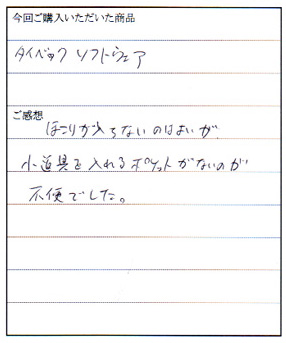 今回ご購入いただいた商品
タイベック ソフトウェア
ご感想
ほこりが入らないのはよいが
小道具を入れるポケットがないのが
不便でした。